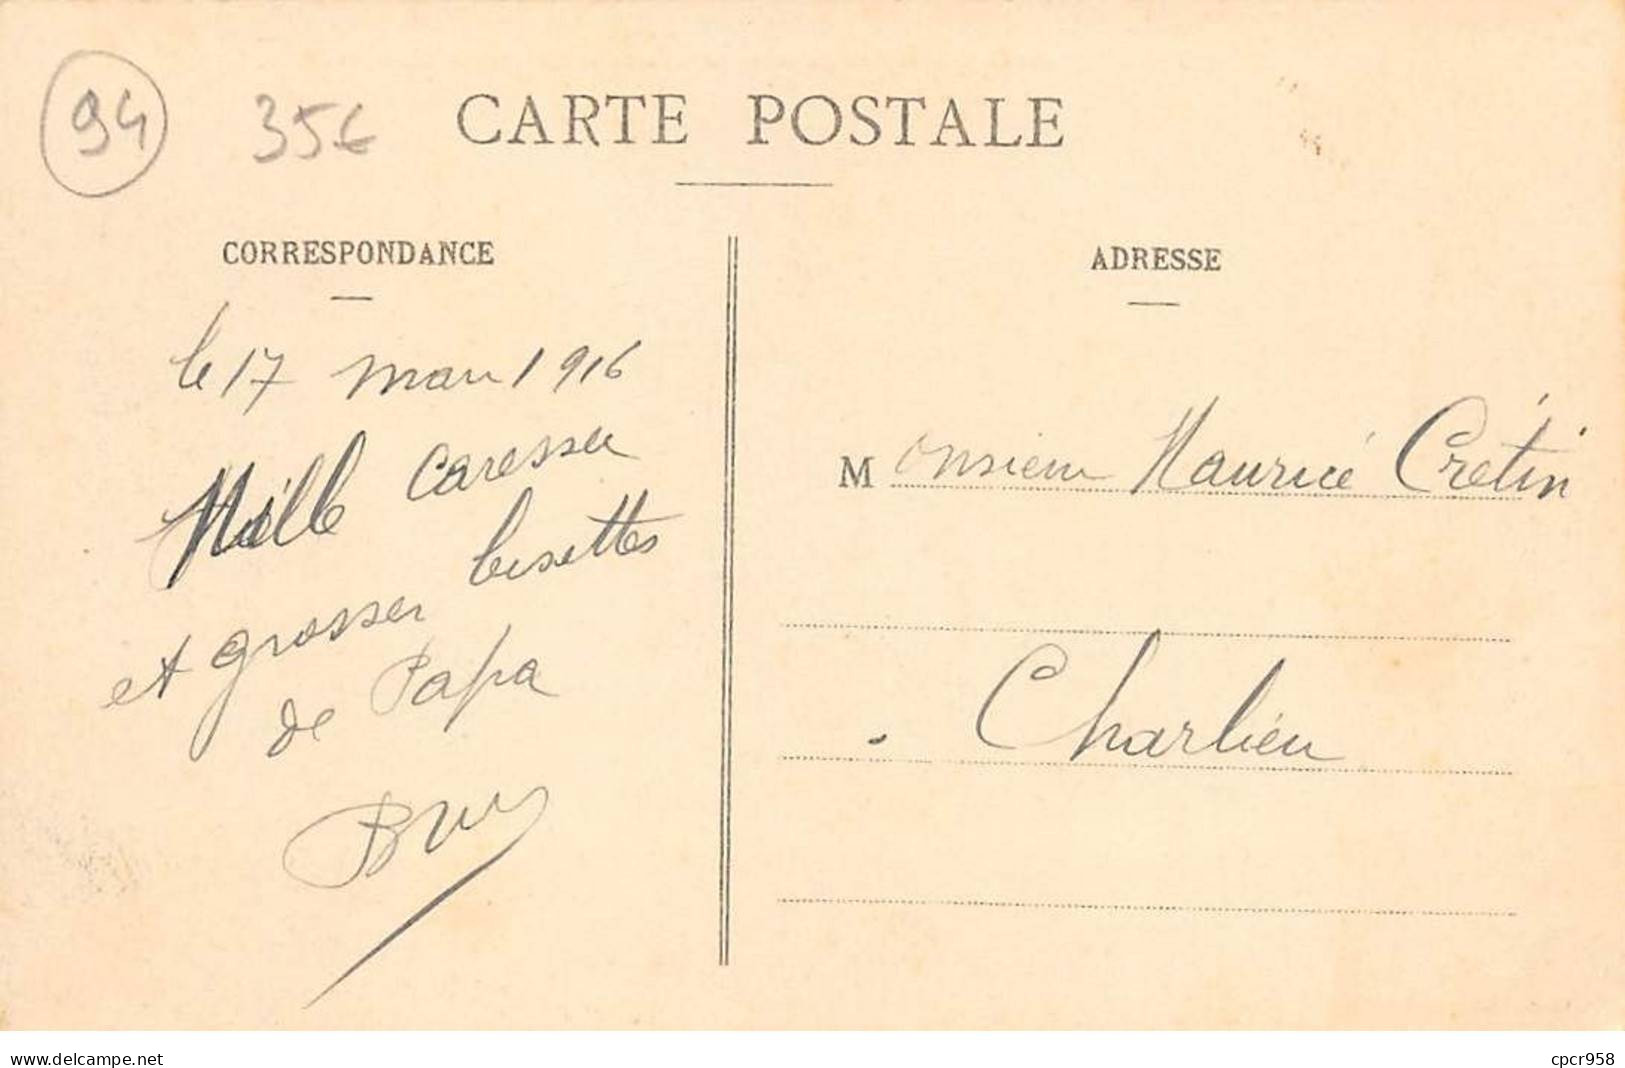 94 35€ CARTE POSTALE
CORRESPONDANCE
le 17 mars 1916
Mille caresses
et grosses bisettes
de Papa
ADRESSE
Monsieur Maurice Crétin
Charlieu
www.delcampe.net
cpcr958